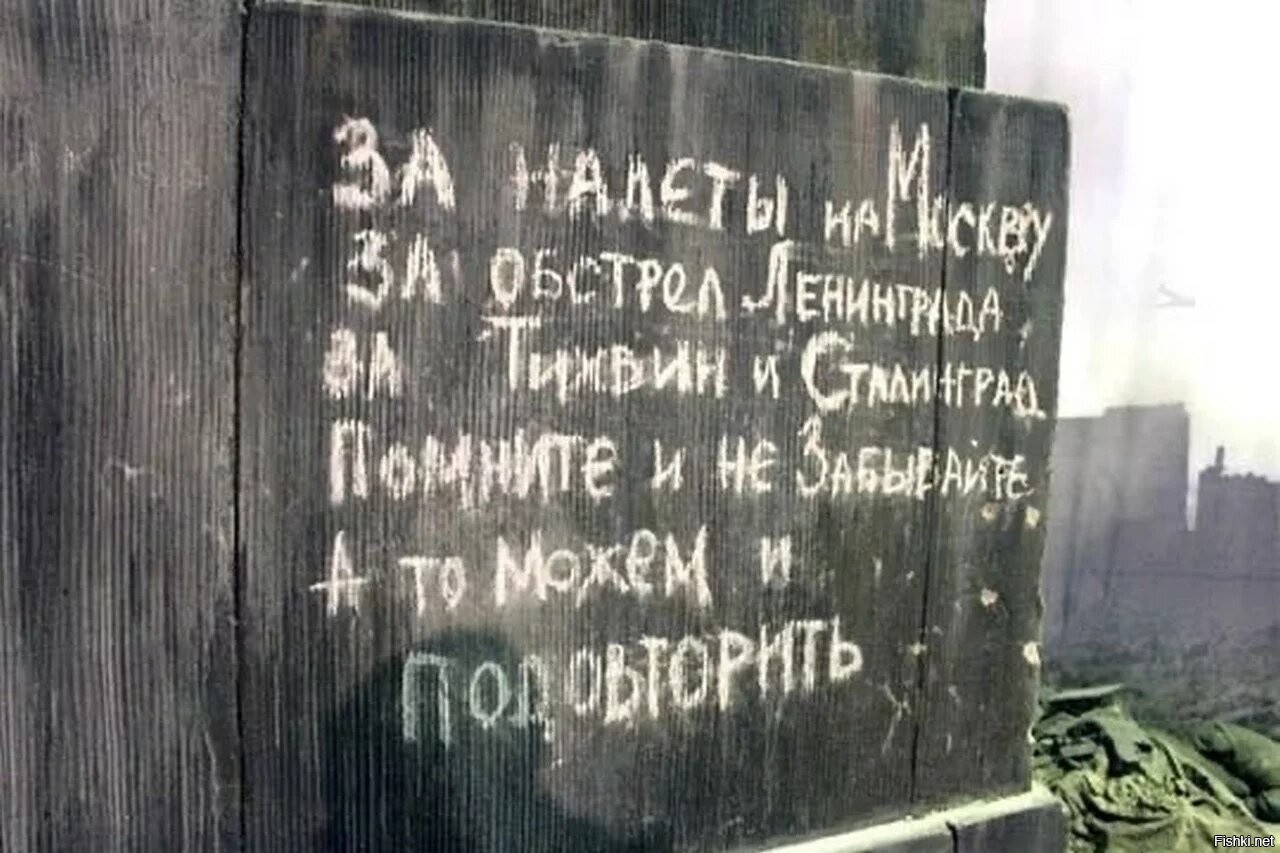 За налеты на Москву
За обстрел Ленинграда
За Тихвин и Сталинград
Помните и не Забывайте
А то можем и
подовторить
Fishki.net